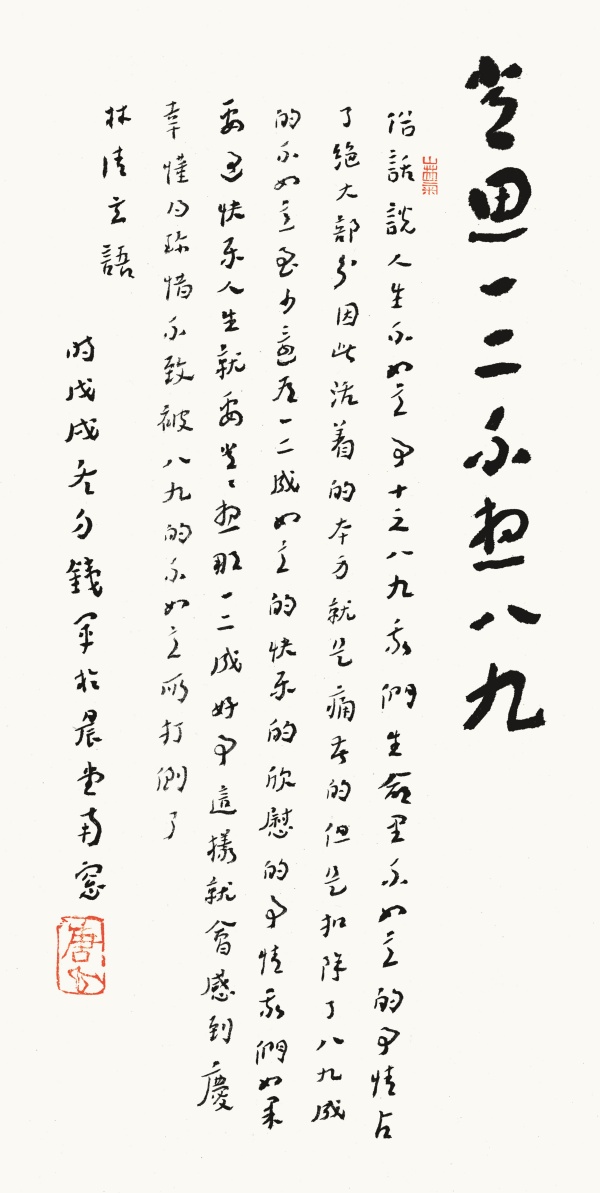 常思一二不想八九
俗話說人生不如意事十之八九我們生命里不如意的事情占
了絕大部分因此活着的本身就是痛苦的但是扣除了八九成
的不如意至少還有一二成如意的快乐的欣慰的事情我們如果
要過快乐人生就要常常想那一二成好事這樣就會感到慶
幸懂得珍惜不致被八九的不如意所打倒了
林清玄語
時戊戌冬月錢軍於晨堂南窗